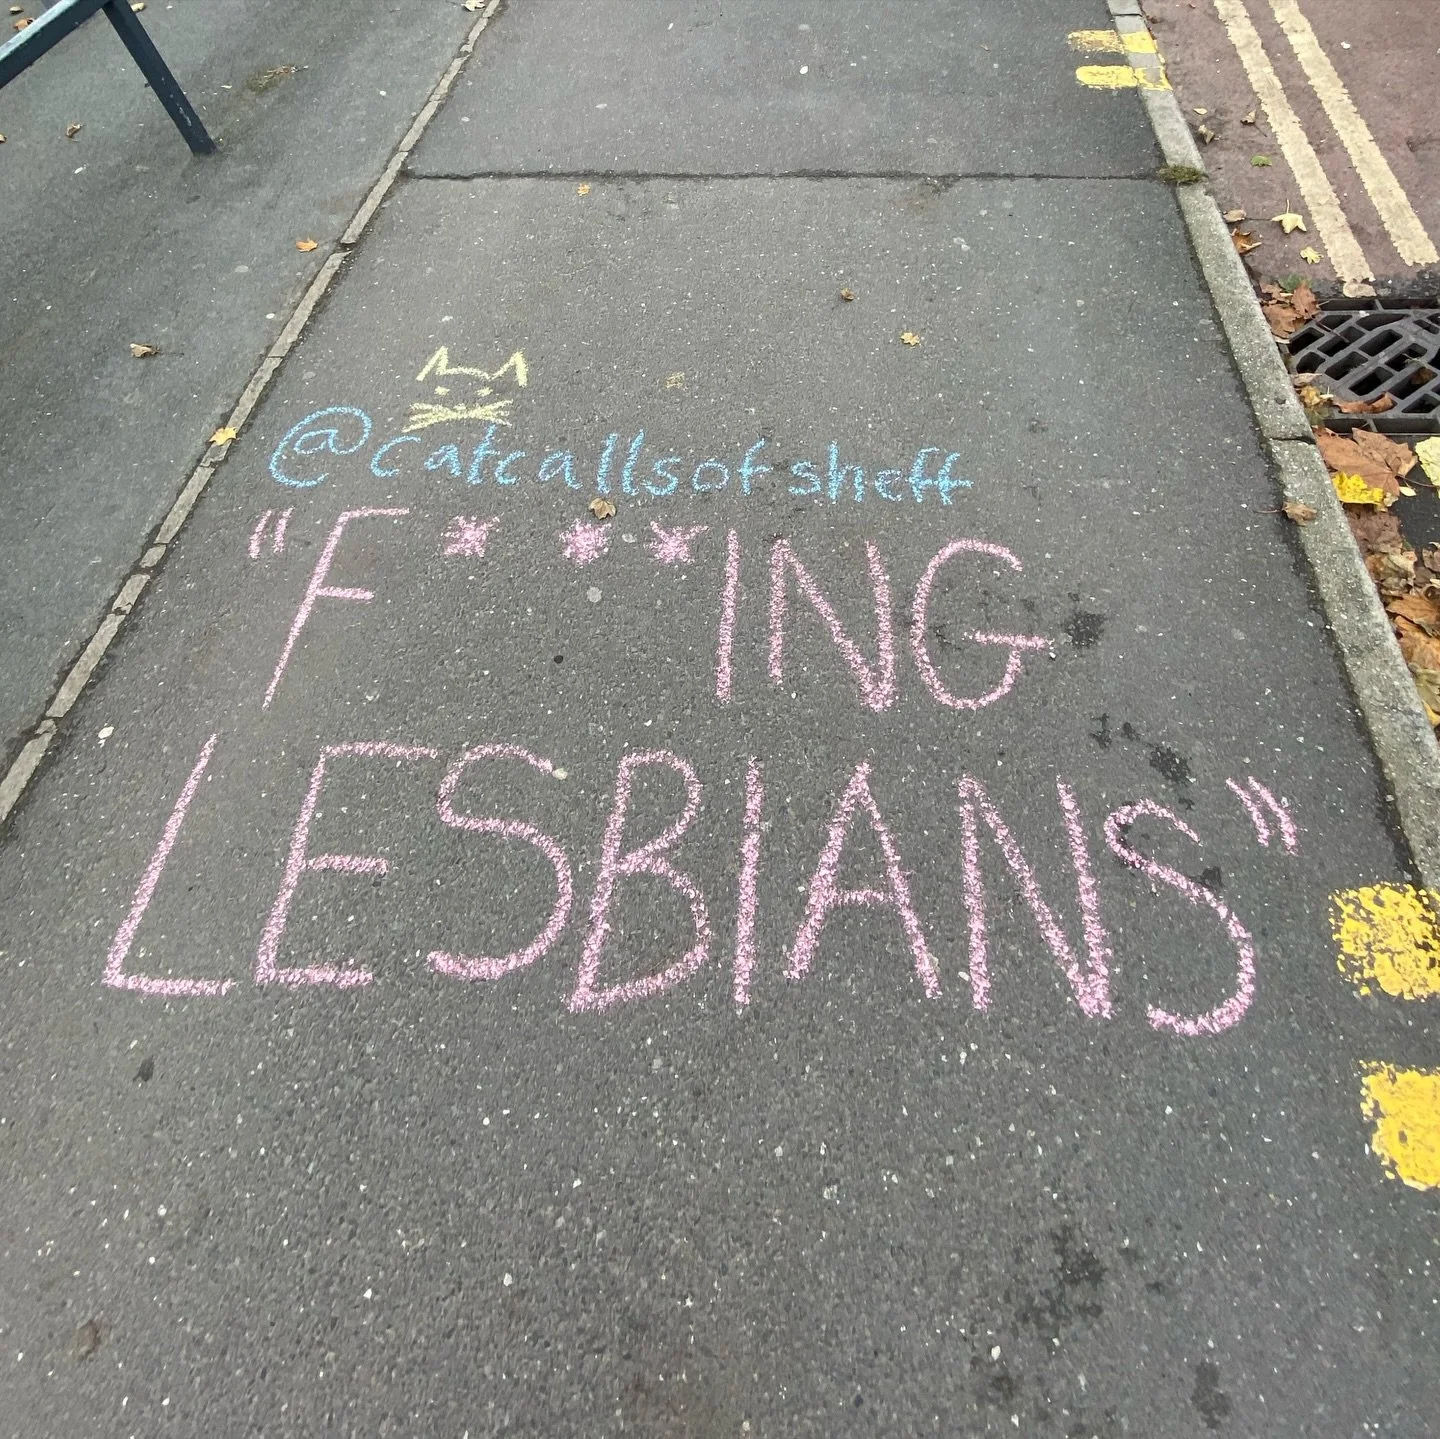 @catcallsofsheff
"F***ING
LESBIANS"